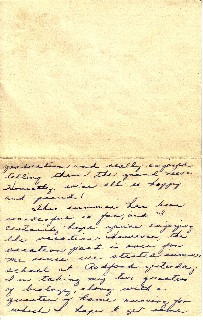 graduation and really enjoyed
telling them the grand news.
Honestly, we're all so happy
and proud!
This summer has been
wonderful so far, and I
certainly hope you're enjoying
the vacation. However, the
vacation part is over for
me since we started summer
school at Radford yesterday.
I'm taking my two quarters
of biology along with a
quarter of home nursing for
which I hope to get some